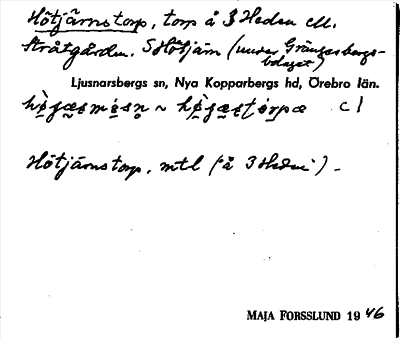 Hötjärnstorp, torp å 3 Heden ell.
Stråtgården. S Hötjärn (under Grängesbergs-
bolaget)
Ljusnarsbergs sn, Nya Kopparbergs hd, Örebro län.
c 1
Hötjärnstorp, mtl (å 3 Heden).
MAJA FORSSLUND 1946